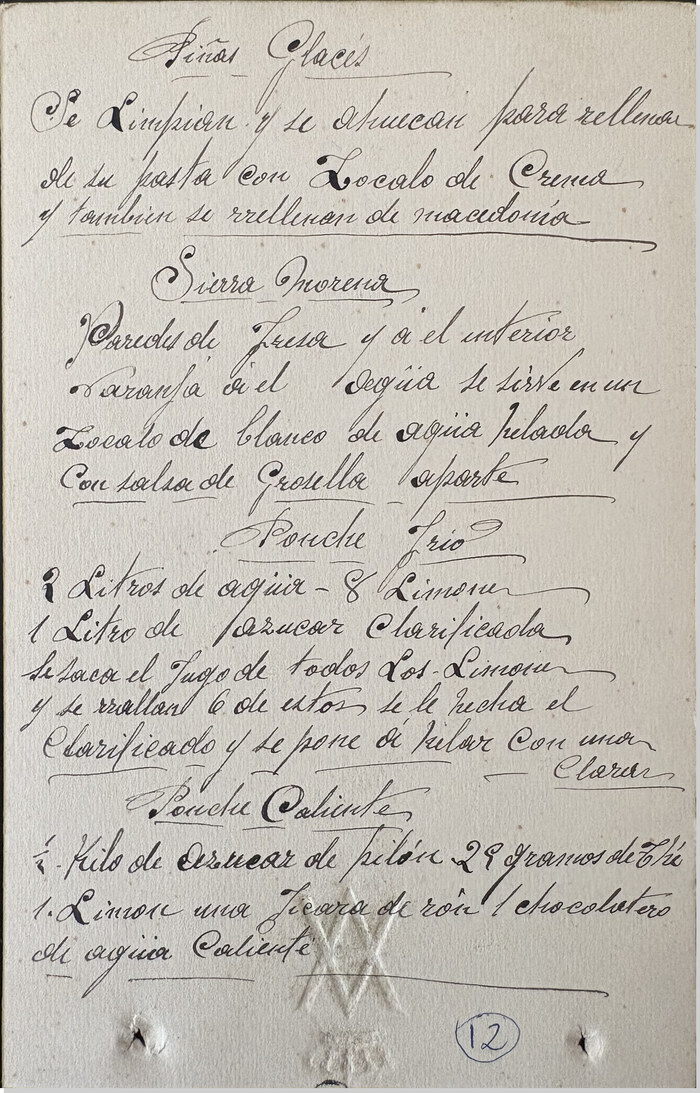 Piñas Glacés
Se Limpian y se ahuecan para rellenar
de su pasta con Zocalo de Crema
y tambien se rrellenan de macedonia
Sierra Morena
Paredes de Fresa y á el interior
Naranja á el agüa se sirve en un
Zocalo de blanco de agüa helada y
Con salsa de Grosella aparte
Ponche Frio
2 Litros de agüa - 8 Limones
1 Litro de azucar Clarificada
se saca el Jugo de todos Los Limones
y se rrallan 6 de estos se le hecha el
Clarificado y se pone á hilar Con una
Claras
Ponche Caliente
½ Kilo de azucar de pilón 29 gramos de Thé
1. Limon una Jicara de rón 1 chocolatero
de agüa Caliente
12